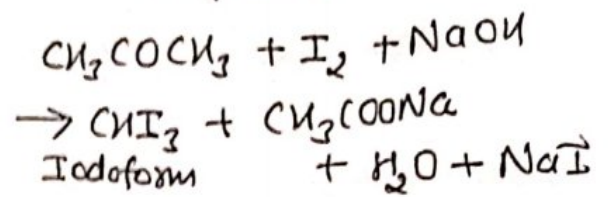 CH₃COCH₃ + I₂ + NaOH
→ CHI₃ + CH₃COONa
Iodoform + H₂O + NaI